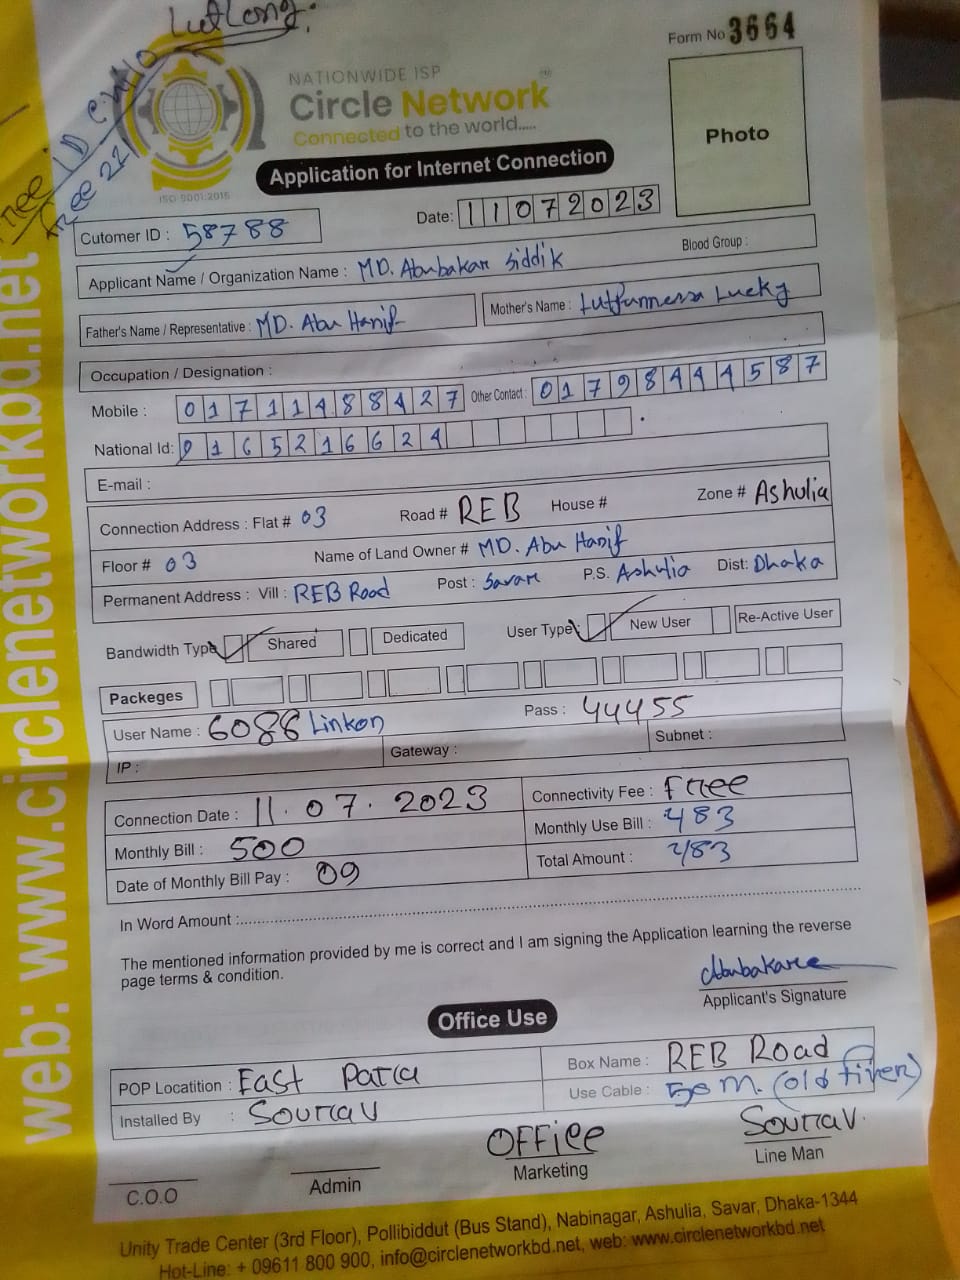 LutLong.
Form No 3664
NATIONWIDE ISP
Circle Network
Connected to the world.....
ISO 9001:2015
Photo
Application for Internet Connection
Cutomer ID : 58788
Date: 11072023
Applicant Name / Organization Name : MD. Abubakar Siddik
Blood Group :
Father's Name / Representative : MD. Abu Hanif
Mother's Name : Lutfunnessa Lucky
Occupation / Designation :
Mobile : 01711488427
Other Contact : 01798444587
National Id: 0165216624
E-mail :
Connection Address : Flat # 03 Road # REB House # Zone # Ashulia
Floor # 03 Name of Land Owner # MD. Abu Hanif
Permanent Address : Vill : REB Road Post : Savar P.S. Ashulia Dist: Dhaka
Bandwidth Type Shared Dedicated User Type: New User Re-Active User
Packeges
User Name : 6088 Linkon Pass : 44455
IP : Gateway : Subnet :
Connection Date : 11.07.2023 Connectivity Fee : Free
Monthly Bill : 500 Monthly Use Bill : 483
Date of Monthly Bill Pay : 09 Total Amount : 483
In Word Amount :
The mentioned information provided by me is correct and I am signing the Application learning the reverse
page terms & condition.
Abubakar
Applicant's Signature
Office Use
POP Locatition : East Para Box Name : REB Road
Installed By : Sourav Use Cable : 50 M. (old fiver)
C.O.O
Admin
OFFice
Marketing
Sourav.
Line Man
Unity Trade Center (3rd Floor), Pollibiddut (Bus Stand), Nabinagar, Ashulia, Savar, Dhaka-1344
Hot-Line: + 09611 800 900, info@circlenetworkbd.net, web: www.circlenetworkbd.net
web: www.circlenetworkbd.net